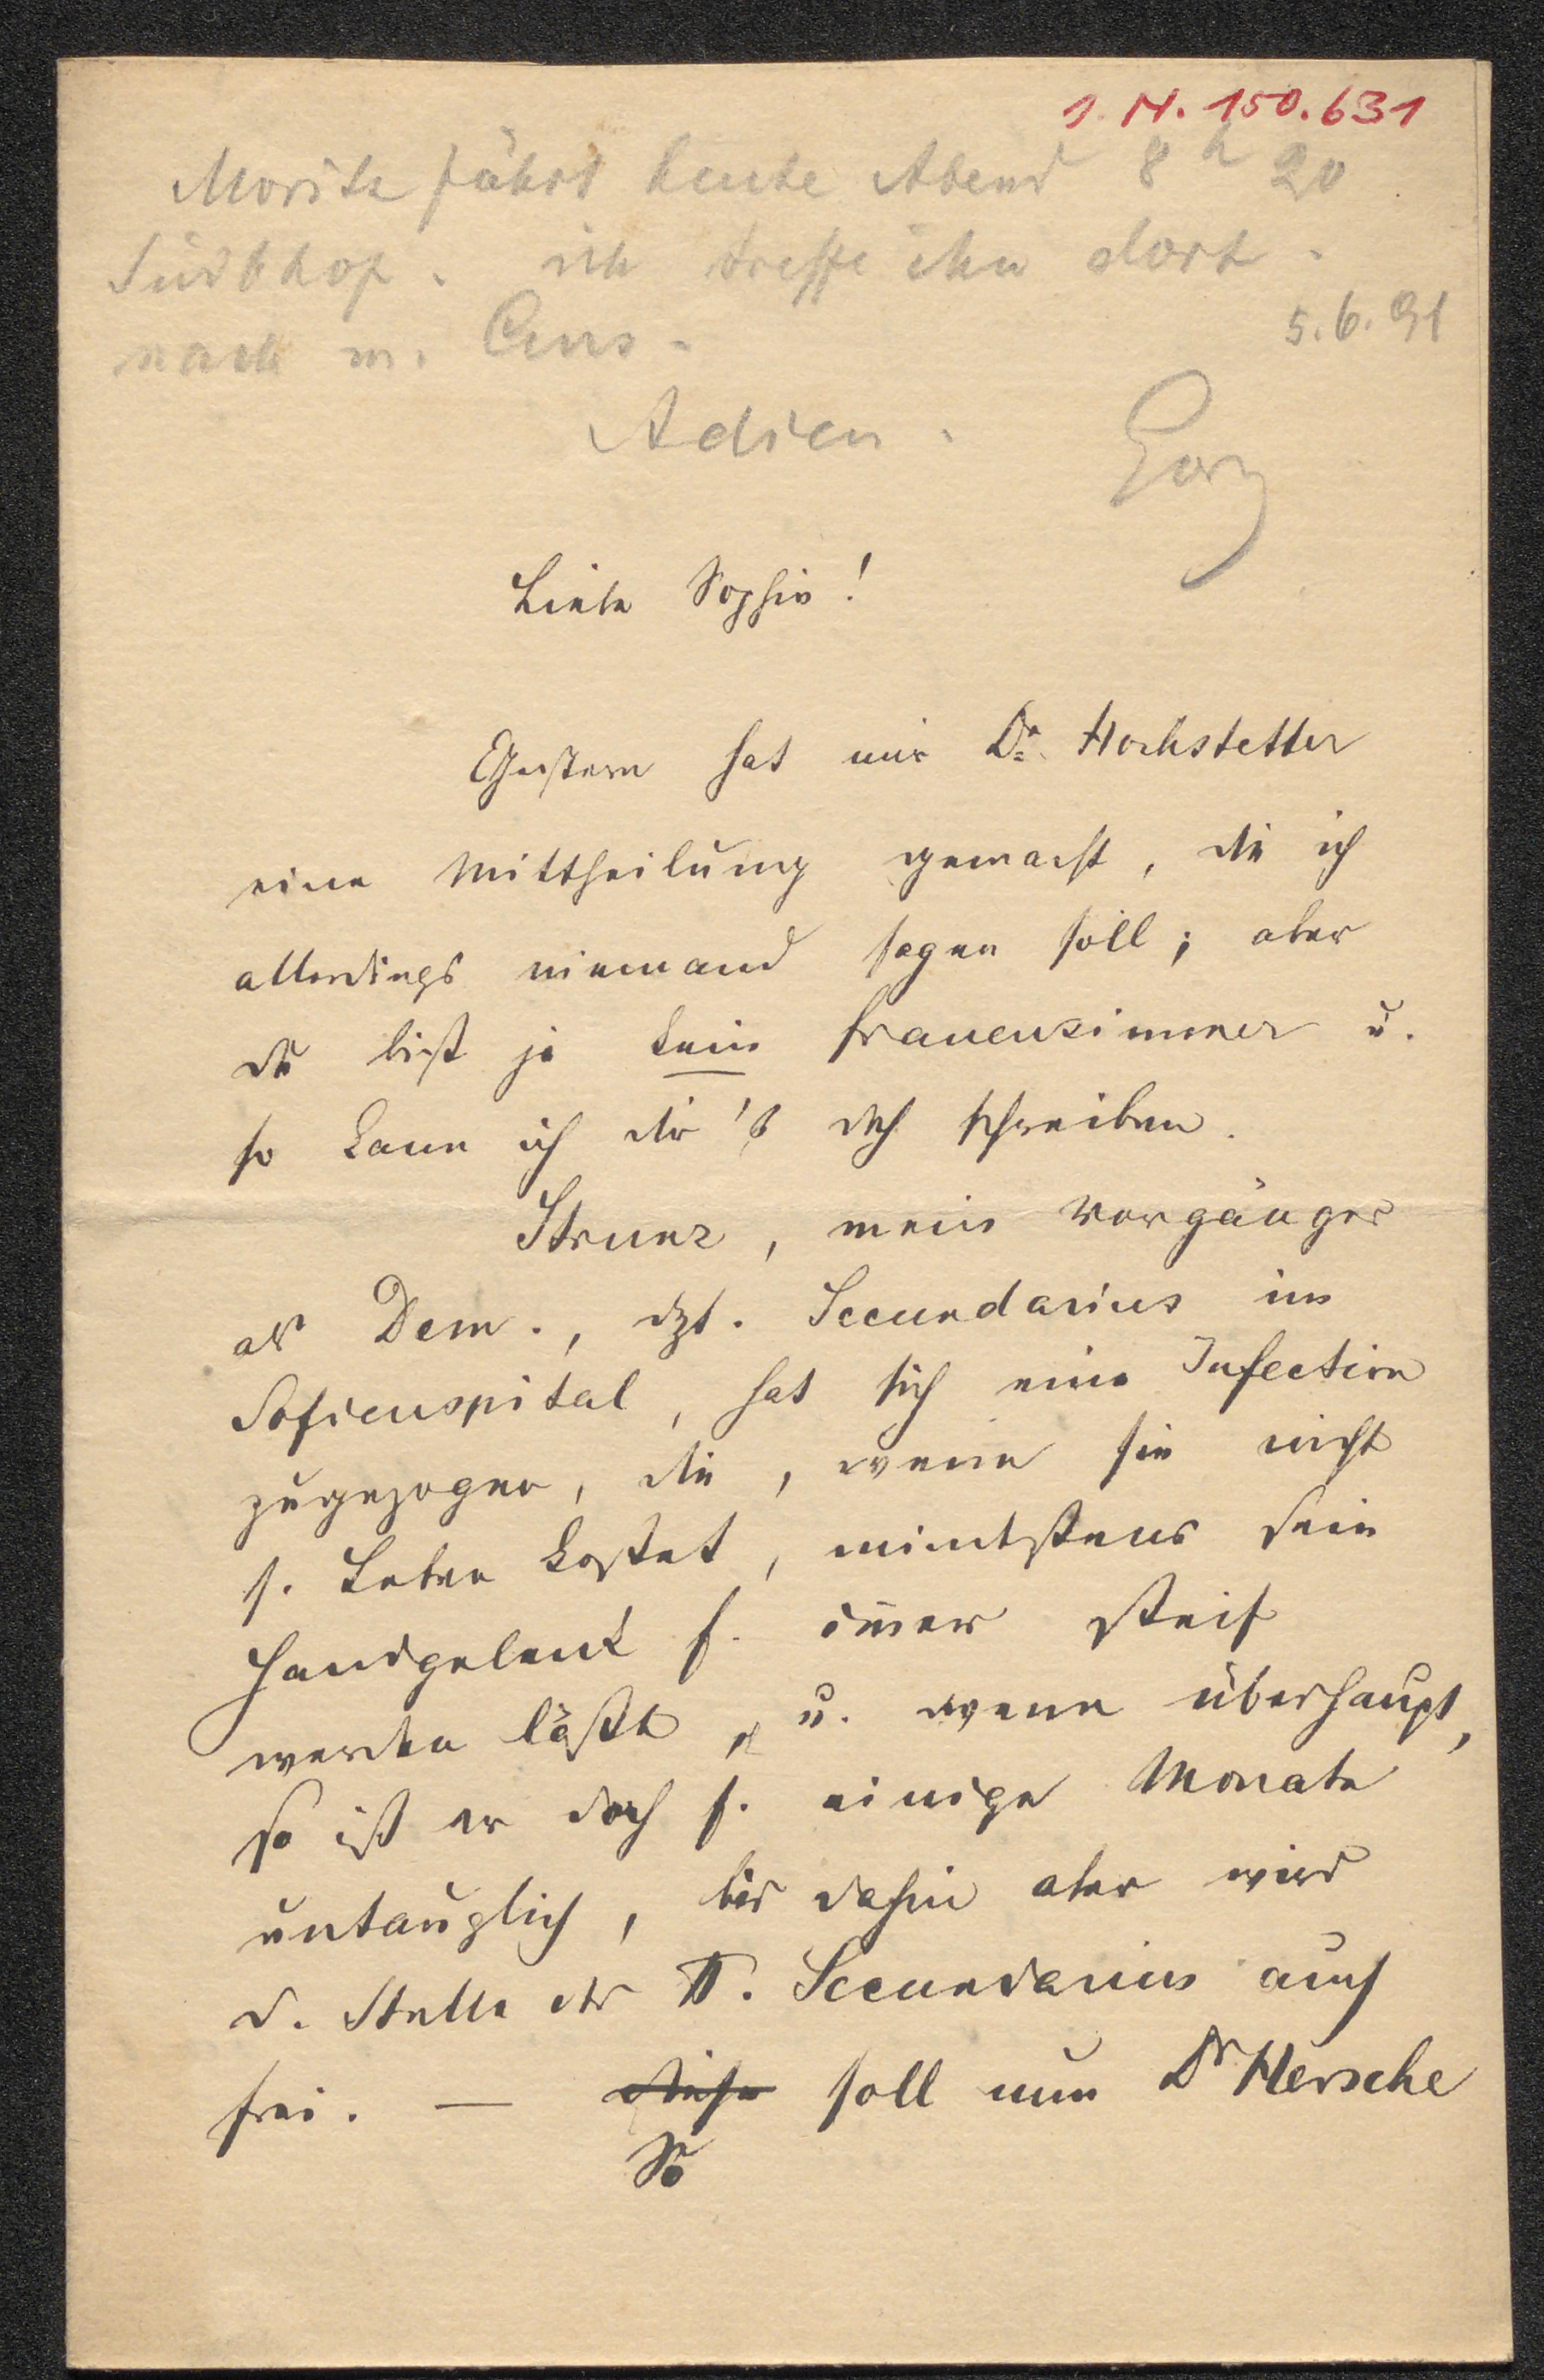 I. N. 150.631
Moritz fährt heute Abend 8 h 20
Südbhof. ich treffe ihn dort.
nach m. Curs.
5.6.91
Adieu.
Liebe Sophie!
Gestern hat mir Dr. Hochstetter
eine Mittheilung gemacht, die ich
allerdings niemand sagen soll; aber
du bist ja kein Frauenzimmer u.
so kann ich dir's doch schreiben.
Strunz, mein Vorgänger
als Dem., dzt. Secundarius im
Sofienspital, hat sich eine Infection
zugezogen, die, wenn sie nicht
s. Leben kostet, mindestens sein
Handgelenk f. immer steif
werden läßt, u. wenn überhaupt,
so ist er doch f. einige Monate
untauglich, bis dahin aber wird
d. Stelle des II. Secundarius auch
frei. — diese soll nun Dr Hersche
So